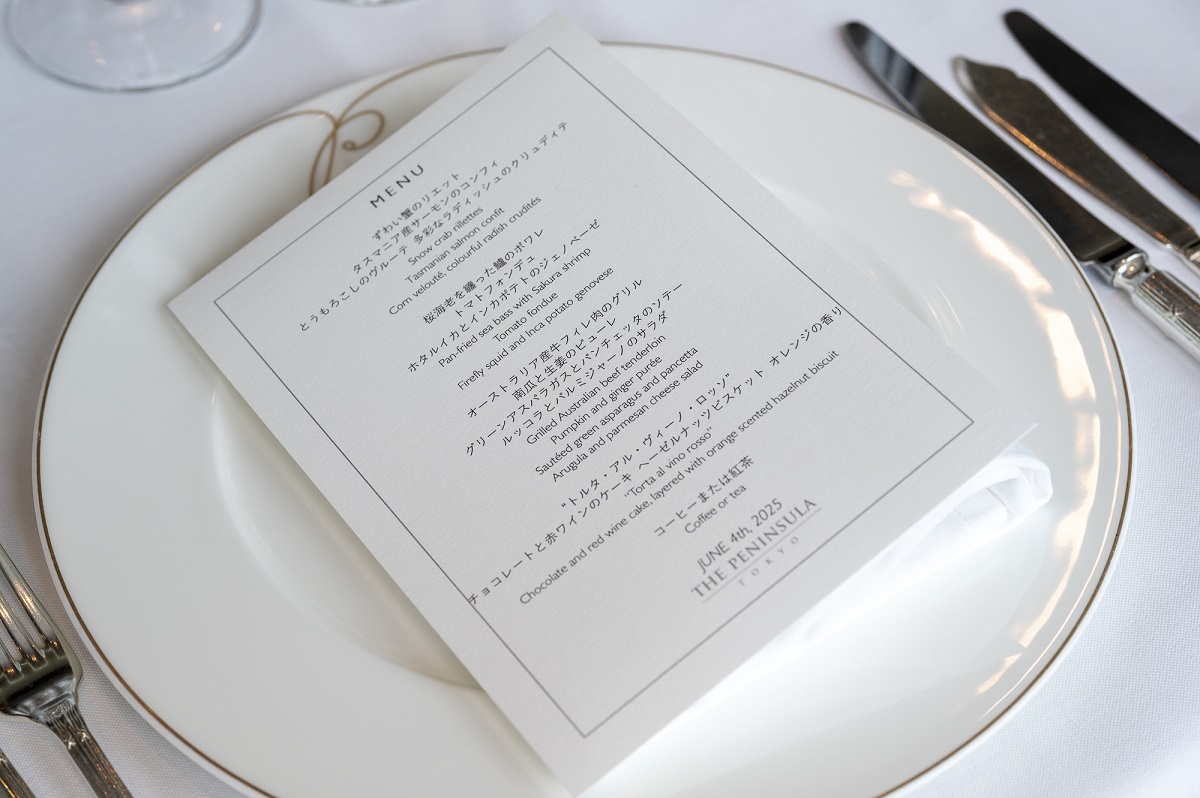 MENU
ずわい蟹のリエット
タスマニア産サーモンのコンフィ
とうもろこしのヴルーテ 多彩なラディッシュのクリュディテ
Snow crab rillettes
Tasmanian salmon confit
Corn velouté, colourful radish crudités
桜海老を纏った鱸のポワレ
トマトフォンデュ
ホタルイカとインカポテトのジェノベーゼ
Pan-fried sea bass with Sakura shrimp
Tomato fondue
Firefly squid and Inca potato genovese
オーストラリア産牛フィレ肉のグリル
南瓜と生姜のピューレ
グリーンアスパラガスとパンチェッタのソテー
ルッコラとパルミジャーノのサラダ
Grilled Australian beef tenderloin
Pumpkin and ginger purée
Sautéed green asparagus and pancetta
Arugula and parmesan cheese salad
"トルタ・アル・ヴィーノ・ロッソ"
チョコレートと赤ワインのケーキ ヘーゼルナッツビスケット オレンジの香り
"Torta al vino rosso"
Chocolate and red wine cake, layered with orange scented hazelnut biscuit
コーヒーまたは紅茶
Coffee or tea
JUNE 4th, 2025
THE PENINSULA
TOKYO